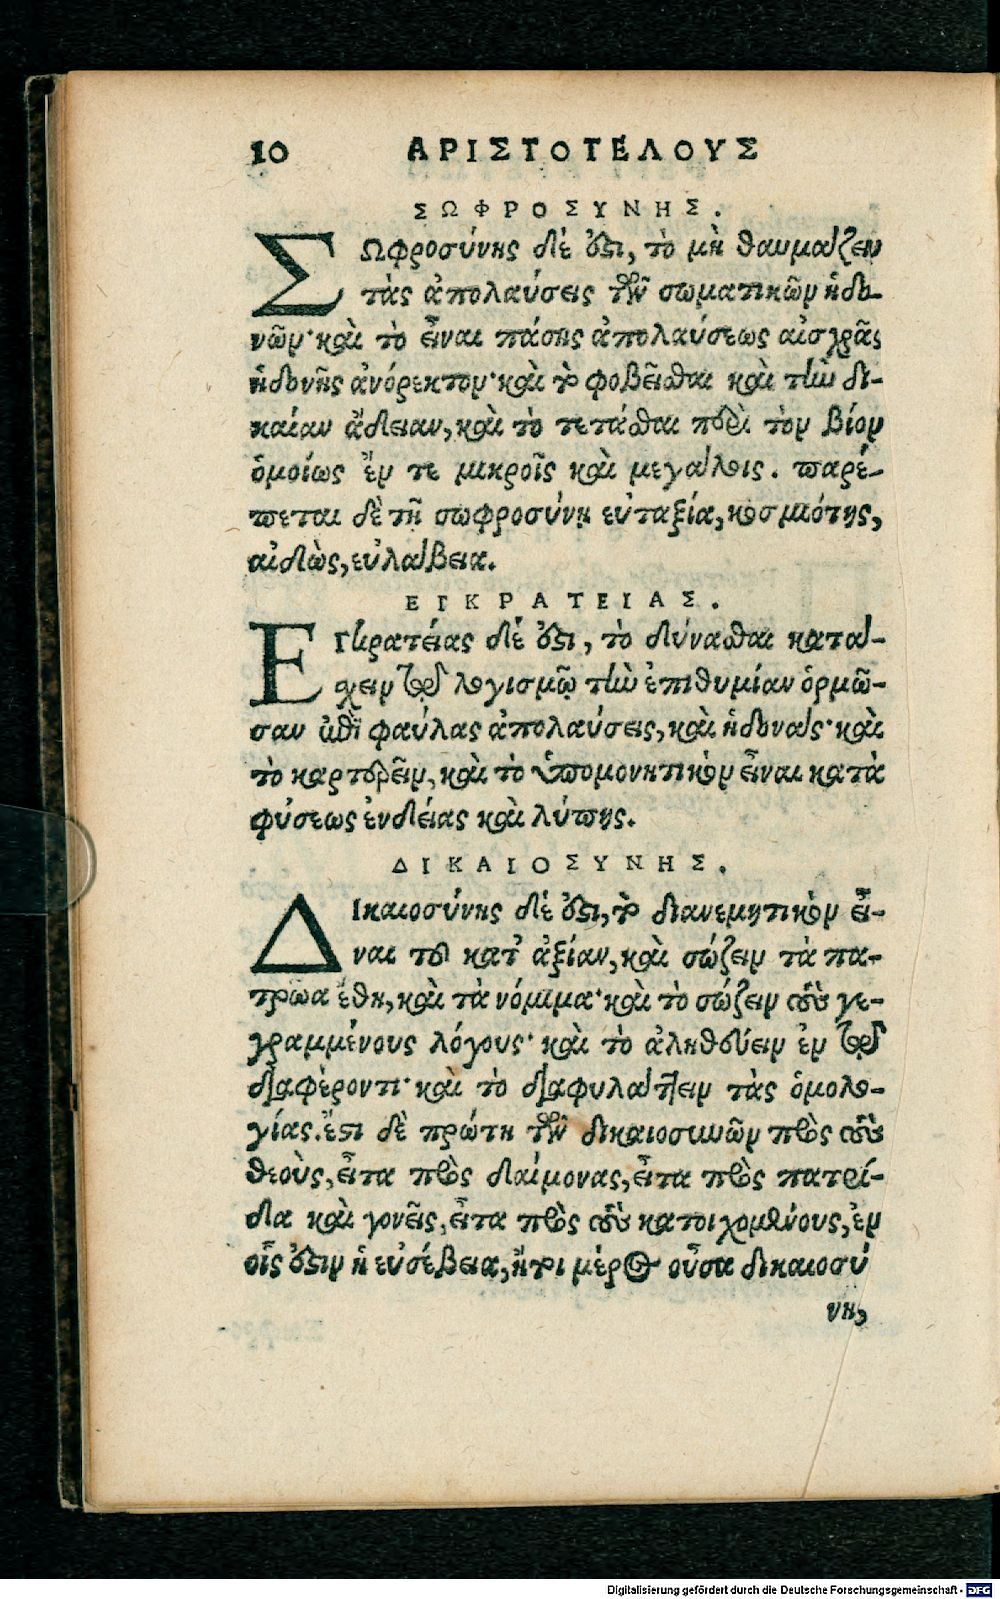 10 ΑΡΙΣΤΟΤΕΛΟΥΣ
ΣΩΦΡΟΣΥΝΗΣ.
ΣΩφροσύνης δέ ἐστι, τὸ μὴ θαυμάζειν
τὰς ἀπολαύσεις τῶν σωματικῶν ἡδο-
νῶν· καὶ τὸ εἶναι πάσης ἀπολαύσεως αἰσχρᾶς
ἡδονῆς ἀνόρεκτον· καὶ τὸ φοβεῖσθαι καὶ τὴν δι-
καίαν ἄδειαν, καὶ τὸ τετάσθαι περὶ τὸν βίον
ὁμοίως ἔν τε μικροῖς καὶ μεγάλοις. παρέ-
πεται δὲ τῇ σωφροσύνῃ εὐταξία, κοσμιότης,
αἰδὼς, εὐλάβεια.
ΕΓΚΡΑΤΕΙΑΣ.
ΕΓκρατείας δέ ἐστι, τὸ δύνασθαι κατά-
χειν τῷ λογισμῷ τὴν ἐπιθυμίαν ὁρμῶ-
σαν ἐπὶ φαύλας ἀπολαύσεις, καὶ ἡδονάς· καὶ
τὸ καρτερεῖν, καὶ τὸ ὑπομονητικὸν εἶναι κατὰ
φύσεως ἐνδείας καὶ λύπης.
ΔΙΚΑΙΟΣΥΝΗΣ.
ΔΙκαιοσύνης δέ ἐστι, τὸ διανεμητικὸν εἶ-
ναι τοῦ κατ' ἀξίαν, καὶ σώζειν τὰ πα-
τρῶα ἔθη, καὶ τὰ νόμιμα· καὶ τὸ σώζειν τοὺς γε-
γραμμένους λόγους· καὶ τὸ ἀληθεύειν ἐν τῷ
διαφέροντι· καὶ τὸ διαφυλάττειν τὰς ὁμολο-
γίας. ἔστι δὲ πρώτη τῶν δικαιοσυνῶν πρὸς τοὺς
θεοὺς, εἶτα πρὸς δαίμονας, εἶτα πρὸς πατρί-
δα καὶ γονεῖς, εἶτα πρὸς τοὺς κατοιχομένους, ἐν
οἷς ἐστιν ἡ εὐσέβεια, ἤτοι μέρος οὖσα δικαιοσύ
νη,
Digitalisierung gefördert durch die Deutsche Forschungsgemeinschaft - DFG